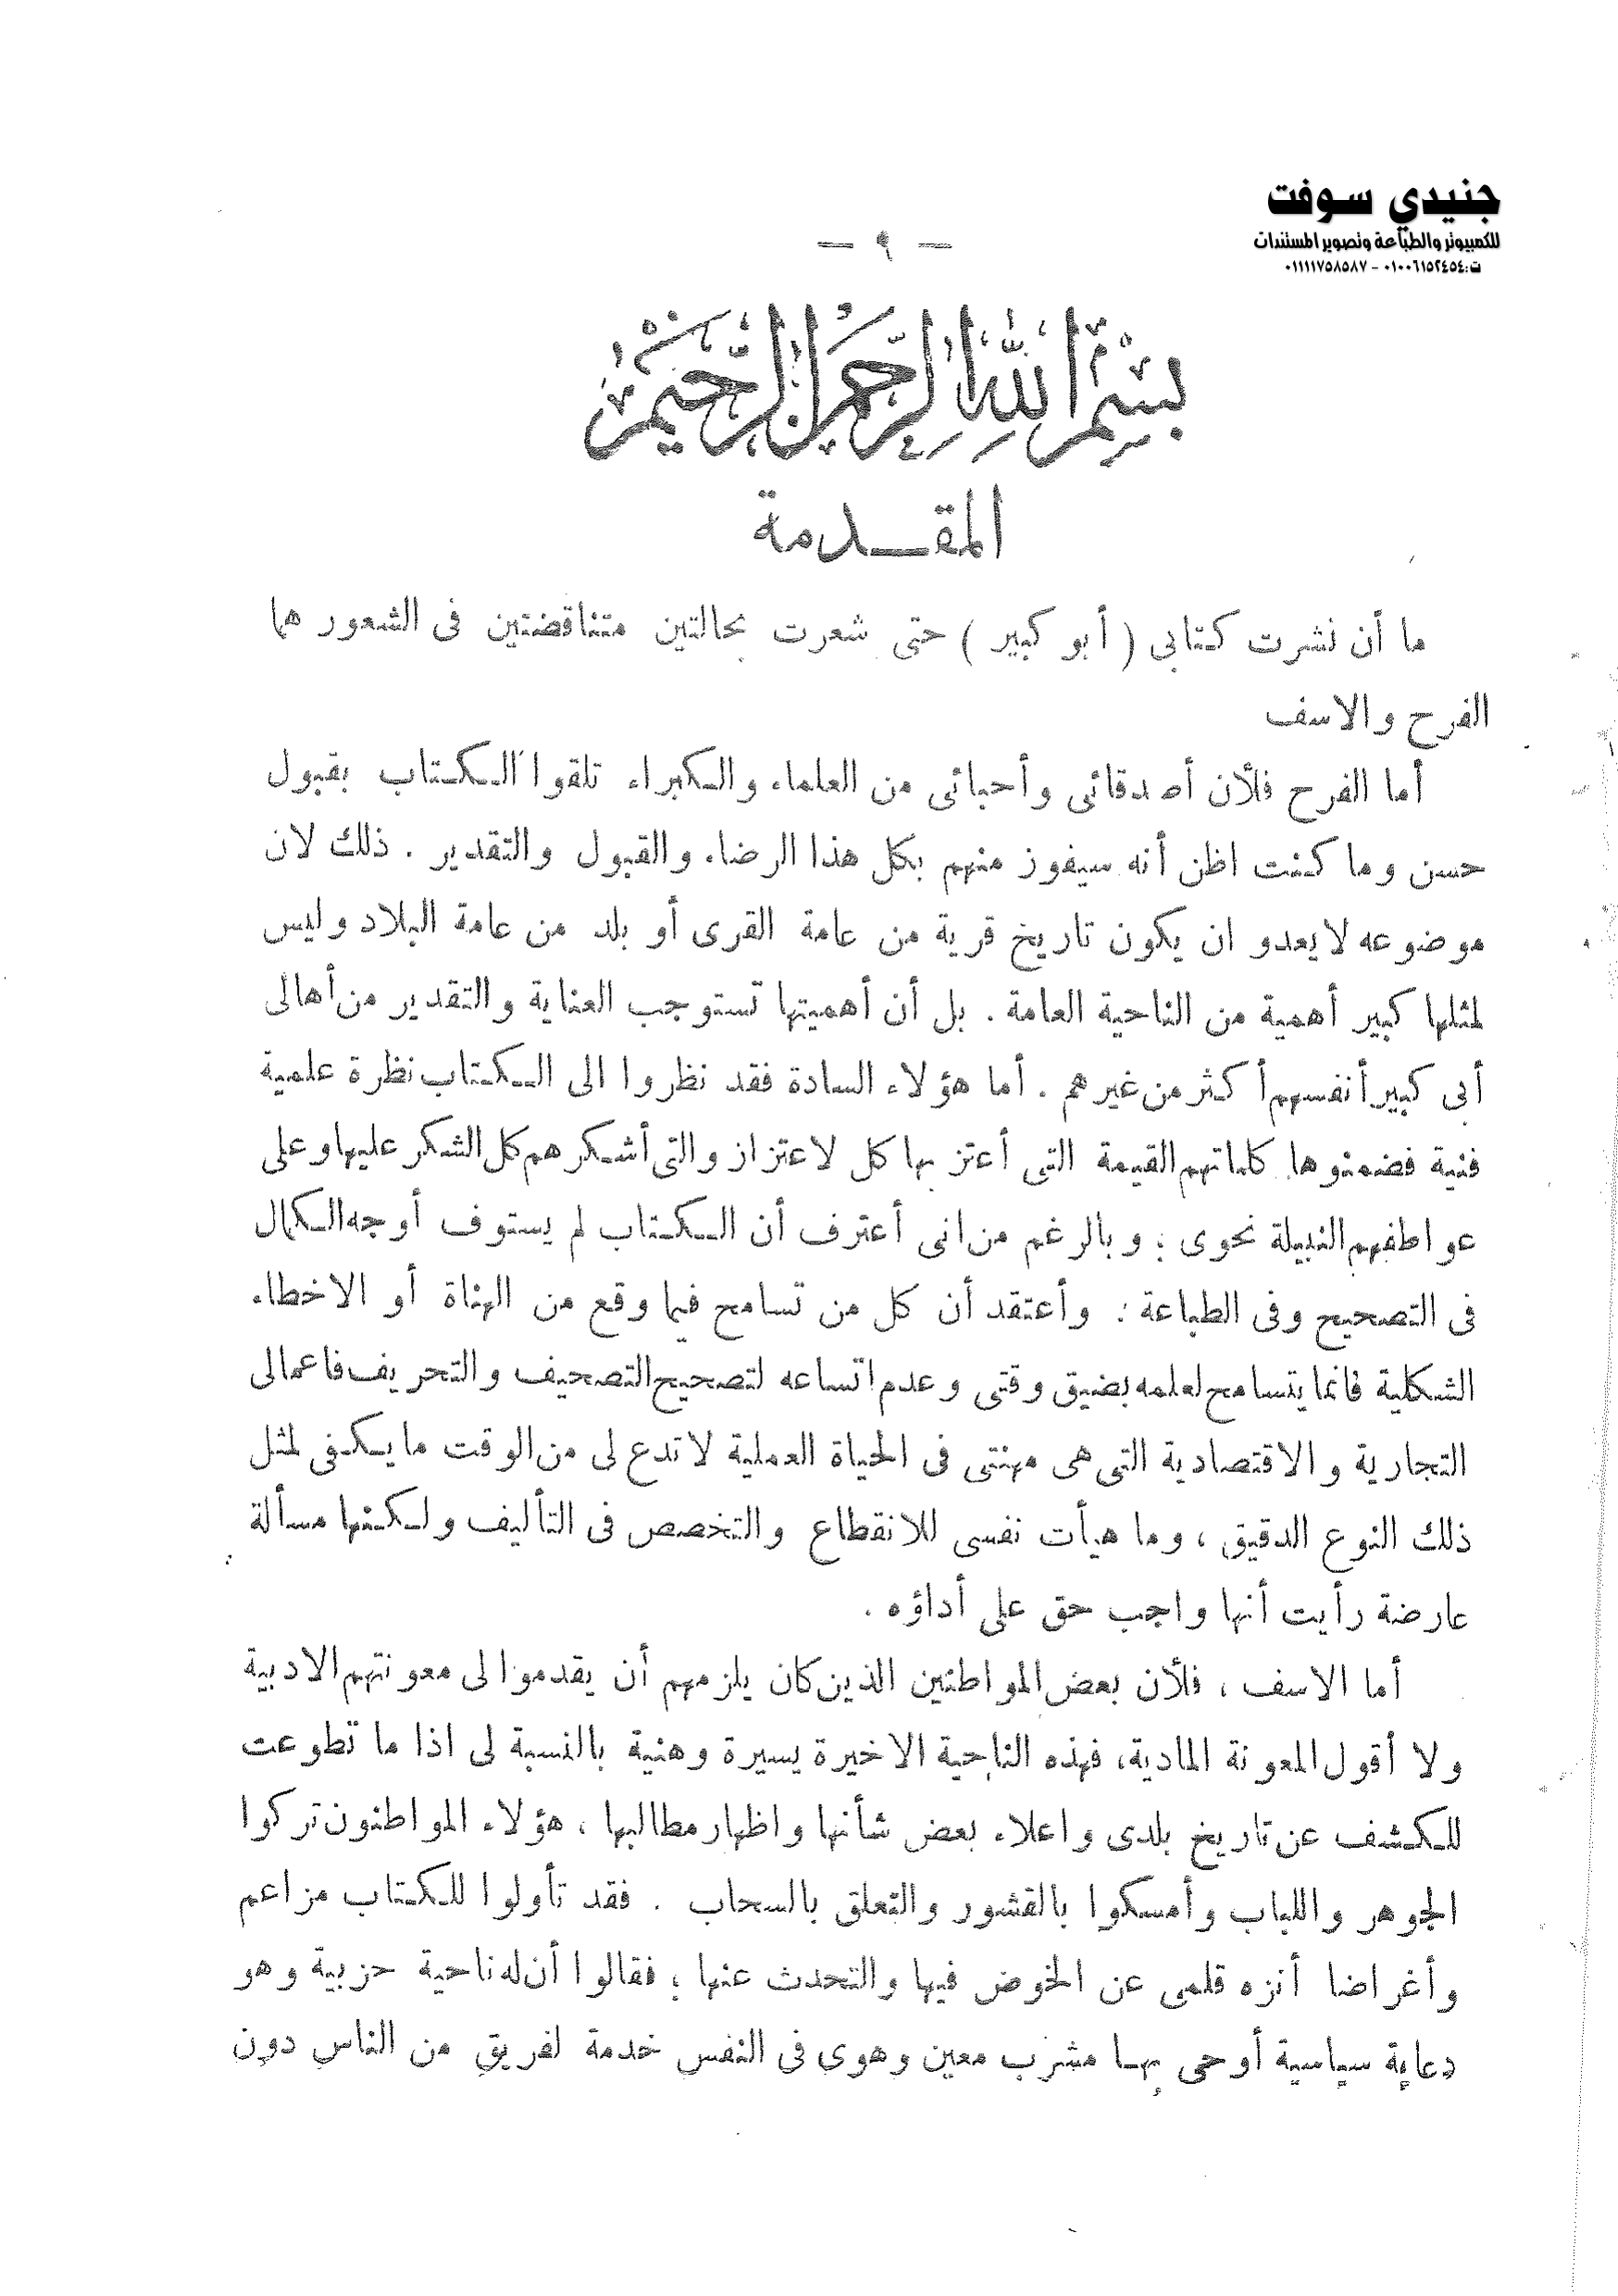 جنيدي سوفت
للكمبيوتر والطباعة وتصوير المستندات
ت:٠١٠٠٦١٥٢٤٥٤ - ٠١١١١٧٥٨٥٨٧
— ٩ —
بسم الله الرحمن الرحيم
المقدمة
ما أن نشرت كتابى ( أبو كبير ) حتى شعرت بحالتين متناقضتين فى الشعور هما
الفرح والاسف
أما الفرح فلأن أصدقائى وأحبائى من العلماء والكبراء تلقوا الكتاب بقبول
حسن وما كنت اظن أنه سيفوز منهم بكل هذا الرضاء والقبول والتقدير . ذلك لان
موضوعه لايعدو ان يكون تاريخ قرية من عامة القرى أو بلد من عامة البلاد وليس
لمثلها كبير أهمية من الناحية العامة . بل أن أهميتها تستوجب العناية والتقدير من أهالى
أبى كبير أنفسهم أكثر من غيرهم . أما هؤلاء السادة فقد نظروا الى الكتاب نظرة علمية
فنية فضمنوها كلماتهم القيمة التى أعتز بها كل لاعتزاز والتى أشكرهم كل الشكر عليها وعلى
عواطفهم النبيلة نحوى ؛ وبالرغم من انى أعترف أن الكتاب لم يستوف أوجه الكمال
فى التصحيح وفى الطباعة ؛ وأعتقد أن كل من تسامح فيما وقع من الهناة أو الاخطاء
الشكلية فانما يتسامح لعلمه بضيق وقتى وعدم اتساعه لتصحيح التصحيف والتحريف فاعمالى
التجارية والاقتصادية التى هى مهنتى فى الحياة العملية لاتدع لى من الوقت ما يكفى لمثل
ذلك النوع الدقيق ، وما هيأت نفسى للانقطاع والتخصص فى التأليف ولكنها مسألة
عارضة رأيت أنها واجب حق على أداؤه .
أما الاسف ، فلأن بعض المواطنين الذين كان يلزمهم أن يقدموا لى معونتهم الادبية
ولا أقول المعونة المادية، فهذه الناحية الاخيرة يسيرة وهنية بالنسبة لى اذا ما تطوعت
للكشف عن تاريخ بلدى واعلاء بعض شأنها واظهار مطالبها ، هؤلاء المواطنون تركوا
الجوهر واللباب وأمسكوا بالقشور والتعلق بالسحاب . فقد تأولوا للكتاب مزاعم
وأغراضا أنزه قلمى عن الخوض فيها والتحدث عنها ؛ فقالوا أن له ناحية حزبية وهو
دعاية سياسية أوحى بها مشرب معين وهوى فى النفس خدمة لفريق من الناس دون